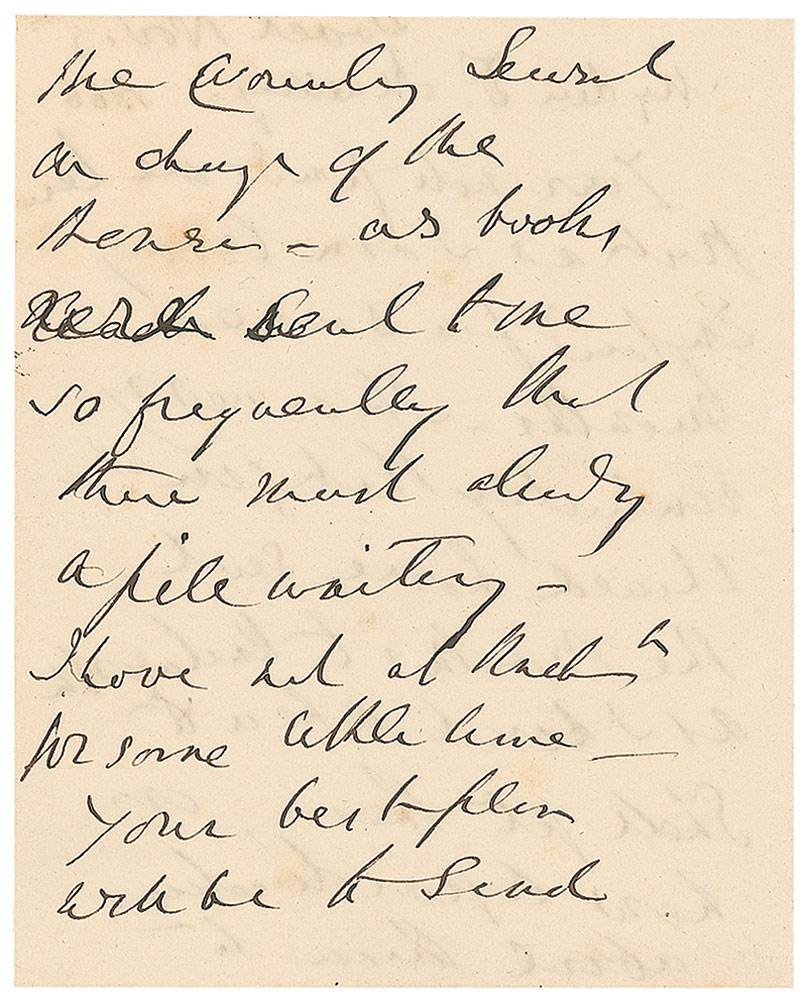 the Country Servant
in charge of the
House – as books
sent to me
so frequently that
there must already
a pile waiting –
I have not at
for some little time –
Your best plan
will be to send